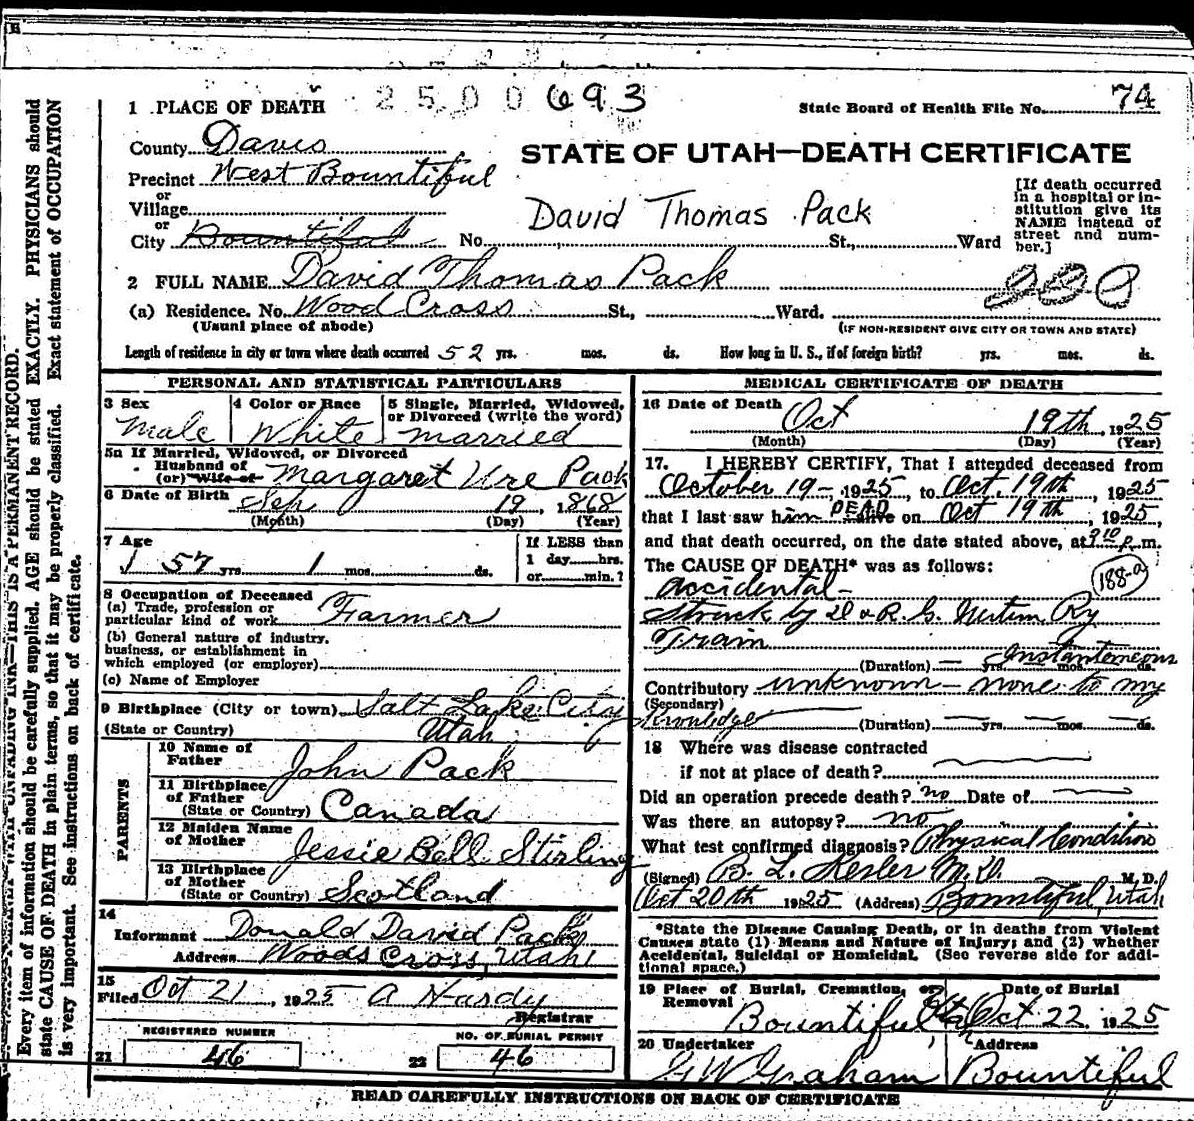 2500693
1 PLACE OF DEATH
State Board of Health File No. 74
County Davis
STATE OF UTAH—DEATH CERTIFICATE
Precinct West Bountiful
or
Village
or
City Bountiful No. St., Ward
David Thomas Pack
[If death occurred
in a hospital or in-
stitution give its
NAME instead of
street and num-
ber.]
2 FULL NAME David Thomas Pack
(a) Residence. No. Wood Cross St., Ward.
(Usual place of abode)
(IF NON-RESIDENT GIVE CITY OR TOWN AND STATE)
Length of residence in city or town where death occurred 52 yrs. mos. ds. How long in U. S., if of foreign birth? yrs. mos. ds.
PERSONAL AND STATISTICAL PARTICULARS
3 Sex
Male
4 Color or Race
White
5 Single, Married, Widowed,
or Divorced (write the word)
married
5a If Married, Widowed, or Divorced
Husband of
(or) Wife of Margaret Ure Pack
6 Date of Birth Sep 19, 1868
(Month) (Day) (Year)
7 Age
57 yrs 1 mos. ds.
If LESS than
1 day hrs.
or min.?
8 Occupation of Deceased
(a) Trade, profession or
particular kind of work Farmer
(b) General nature of industry.
business, or establishment in
which employed (or employer)
(c) Name of Employer
9 Birthplace (City or town) Salt Lake City
(State or Country) Utah
PARENTS
10 Name of
Father John Pack
11 Birthplace
of Father
(State or Country) Canada
12 Maiden Name
of Mother Jessie Bell Stirling
13 Birthplace
of Mother
(State or Country) Scotland
14
Informant Donald David Pack
Address Woods Cross, Utah
15
Filed Oct 21, 1925 A Hardy
Registrar
REGISTERED NUMBER
21 46
NO. OF BURIAL PERMIT
22 46
MEDICAL CERTIFICATE OF DEATH
16 Date of Death Oct 19th, 1925
(Month) (Day) (Year)
17. I HEREBY CERTIFY, That I attended deceased from
October 19-, 1925, to Oct. 19th, 1925
that I last saw him DEAD alive on Oct 19th, 1925,
and that death occurred, on the date stated above, at 9 10 p.m.
The CAUSE OF DEATH* was as follows:
188-a
accidental-
Struck by D & R. G. Ry
Train
(Duration) — yrs. mos. Instantaneous
Contributory unknown — none to my
(Secondary)
knowledge (Duration) yrs. mos. ds.
18 Where was disease contracted
if not at place of death?
Did an operation precede death? no Date of
Was there an autopsy? no
What test confirmed diagnosis? Physical Condition
(Signed) B. L. Kesler M.D. M. D.
Oct 20th 1925 (Address) Bountiful, Utah
*State the Disease Causing Death, or in deaths from Violent
Causes state (1) Means and Nature of Injury; and (2) whether
Accidental, Suicidal or Homicidal. (See reverse side for addi-
tional space.)
19 Place of Burial, Cremation, or
Removal
Bountiful Uta
Date of Burial
Oct 22 1925
20 Undertaker
G W Graham
Address
Bountiful
READ CAREFULLY INSTRUCTIONS ON BACK OF CERTIFICATE
THIS IS A PERMANENT RECORD.
Every item of information should be carefully supplied. AGE should be stated EXACTLY. PHYSICIANS should
state CAUSE OF DEATH in plain terms, so that it may be properly classified. Exact statement of OCCUPATION
is very important. See instructions on back of certificate.